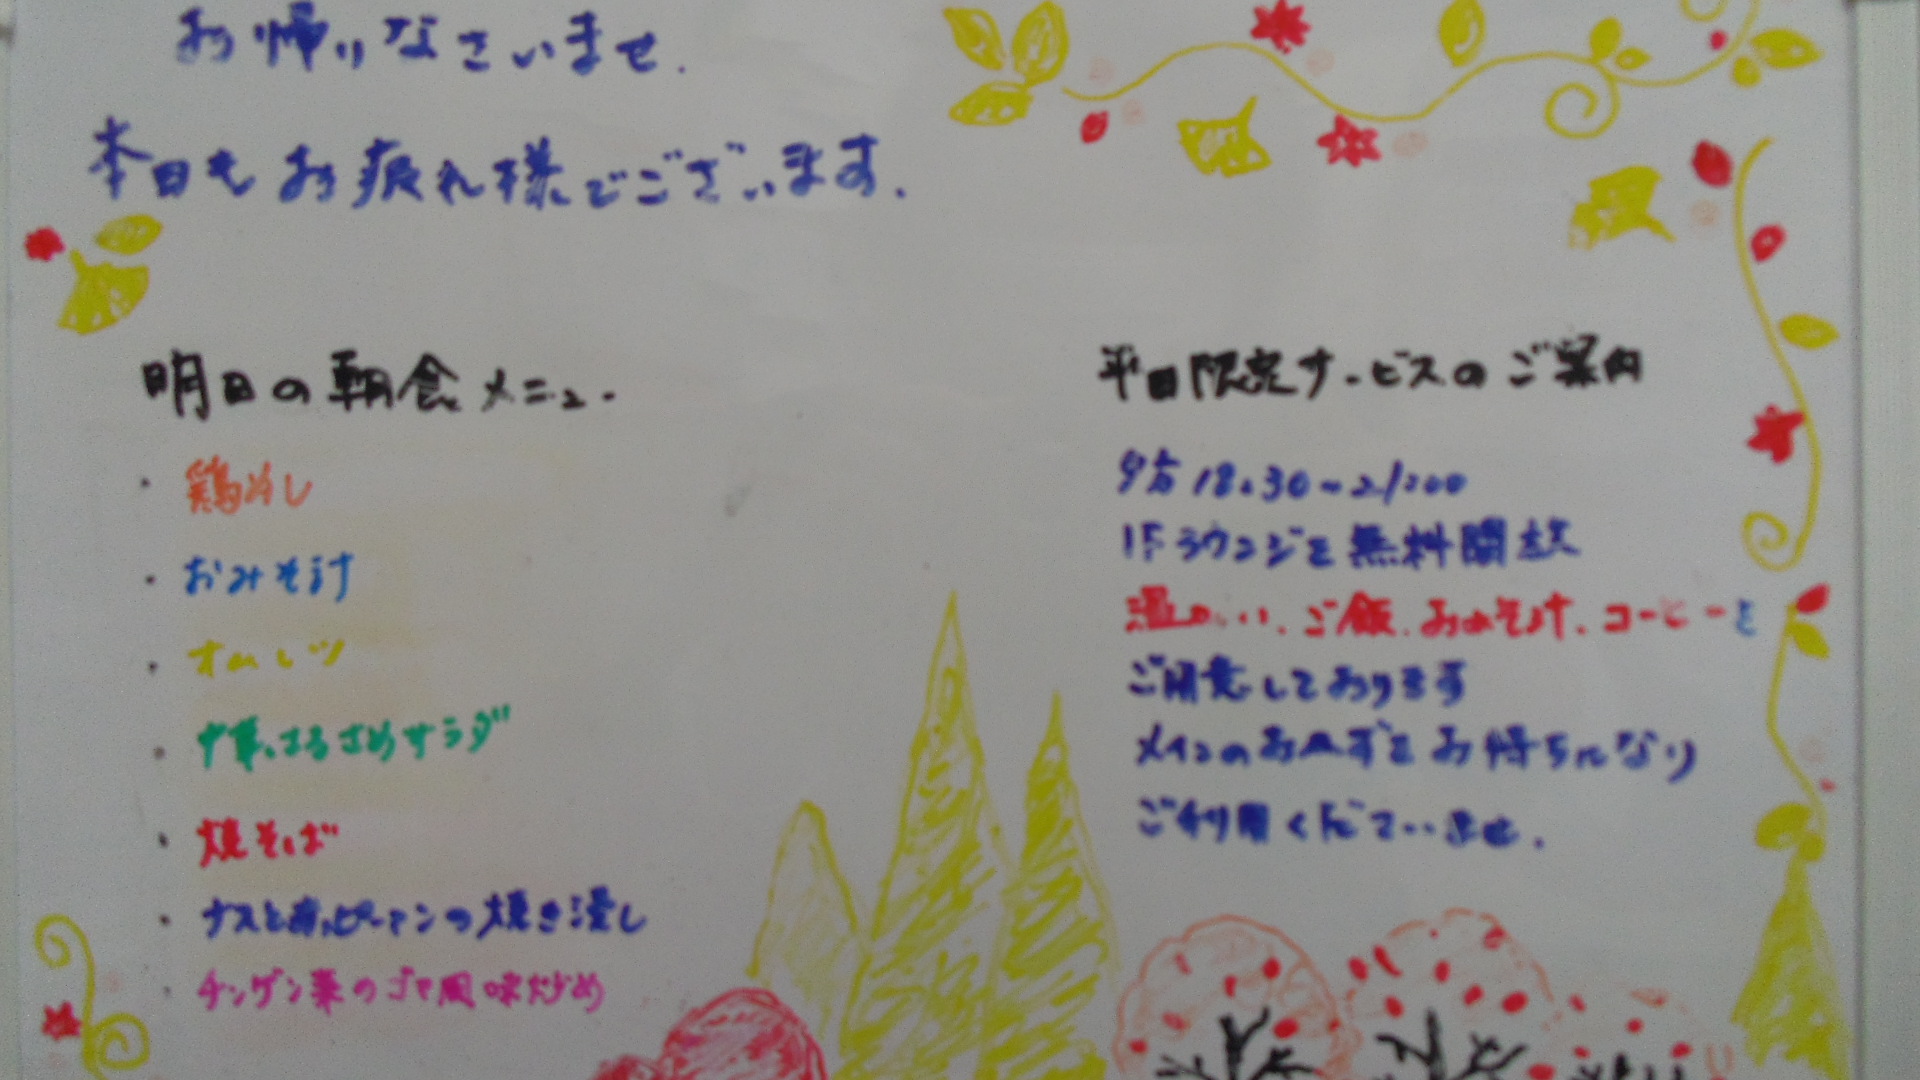 お帰りなさいませ.
本日もお疲れ様でございます.
明日の朝食メニュー
・鶏めし
・おみそ汁
・オムレツ
・中華はるさめサラダ
・焼そば
・ナスと赤ピーマンの焼き浸し
・チンゲン菜のゴマ風味炒め
平日限定サービスのご案内
夕方 18:30~21:00
1Fラウンジを無料開放
温かい、ご飯、おみそ汁、コーヒーを
ご用意しております
メインのおかずをお持ちになり
ご利用くださいませ.